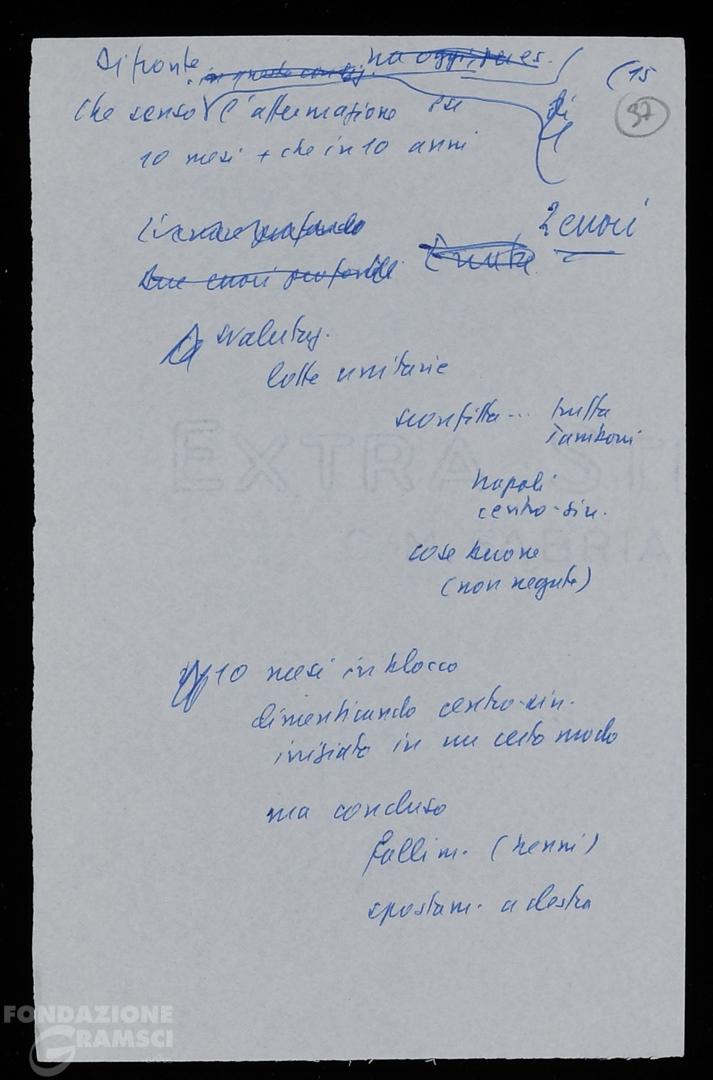 Di fronte (15
37
che senso l'affermazione
10 mesi + che in 10 anni
2 errori
Due errori profondi
svalutaz.
lotte unitarie
sconfitta... truffa
Tambroni
Napoli
centro-sin.
cose buone
(non negate)
10 mesi in blocco
dimenticando centro-sin.
iniziato in un certo modo
ma concluso
fallim. (Nenni)
spostam. a destra
EXTRA ST
FABRIA
FONDAZIONE
GRAMSCI